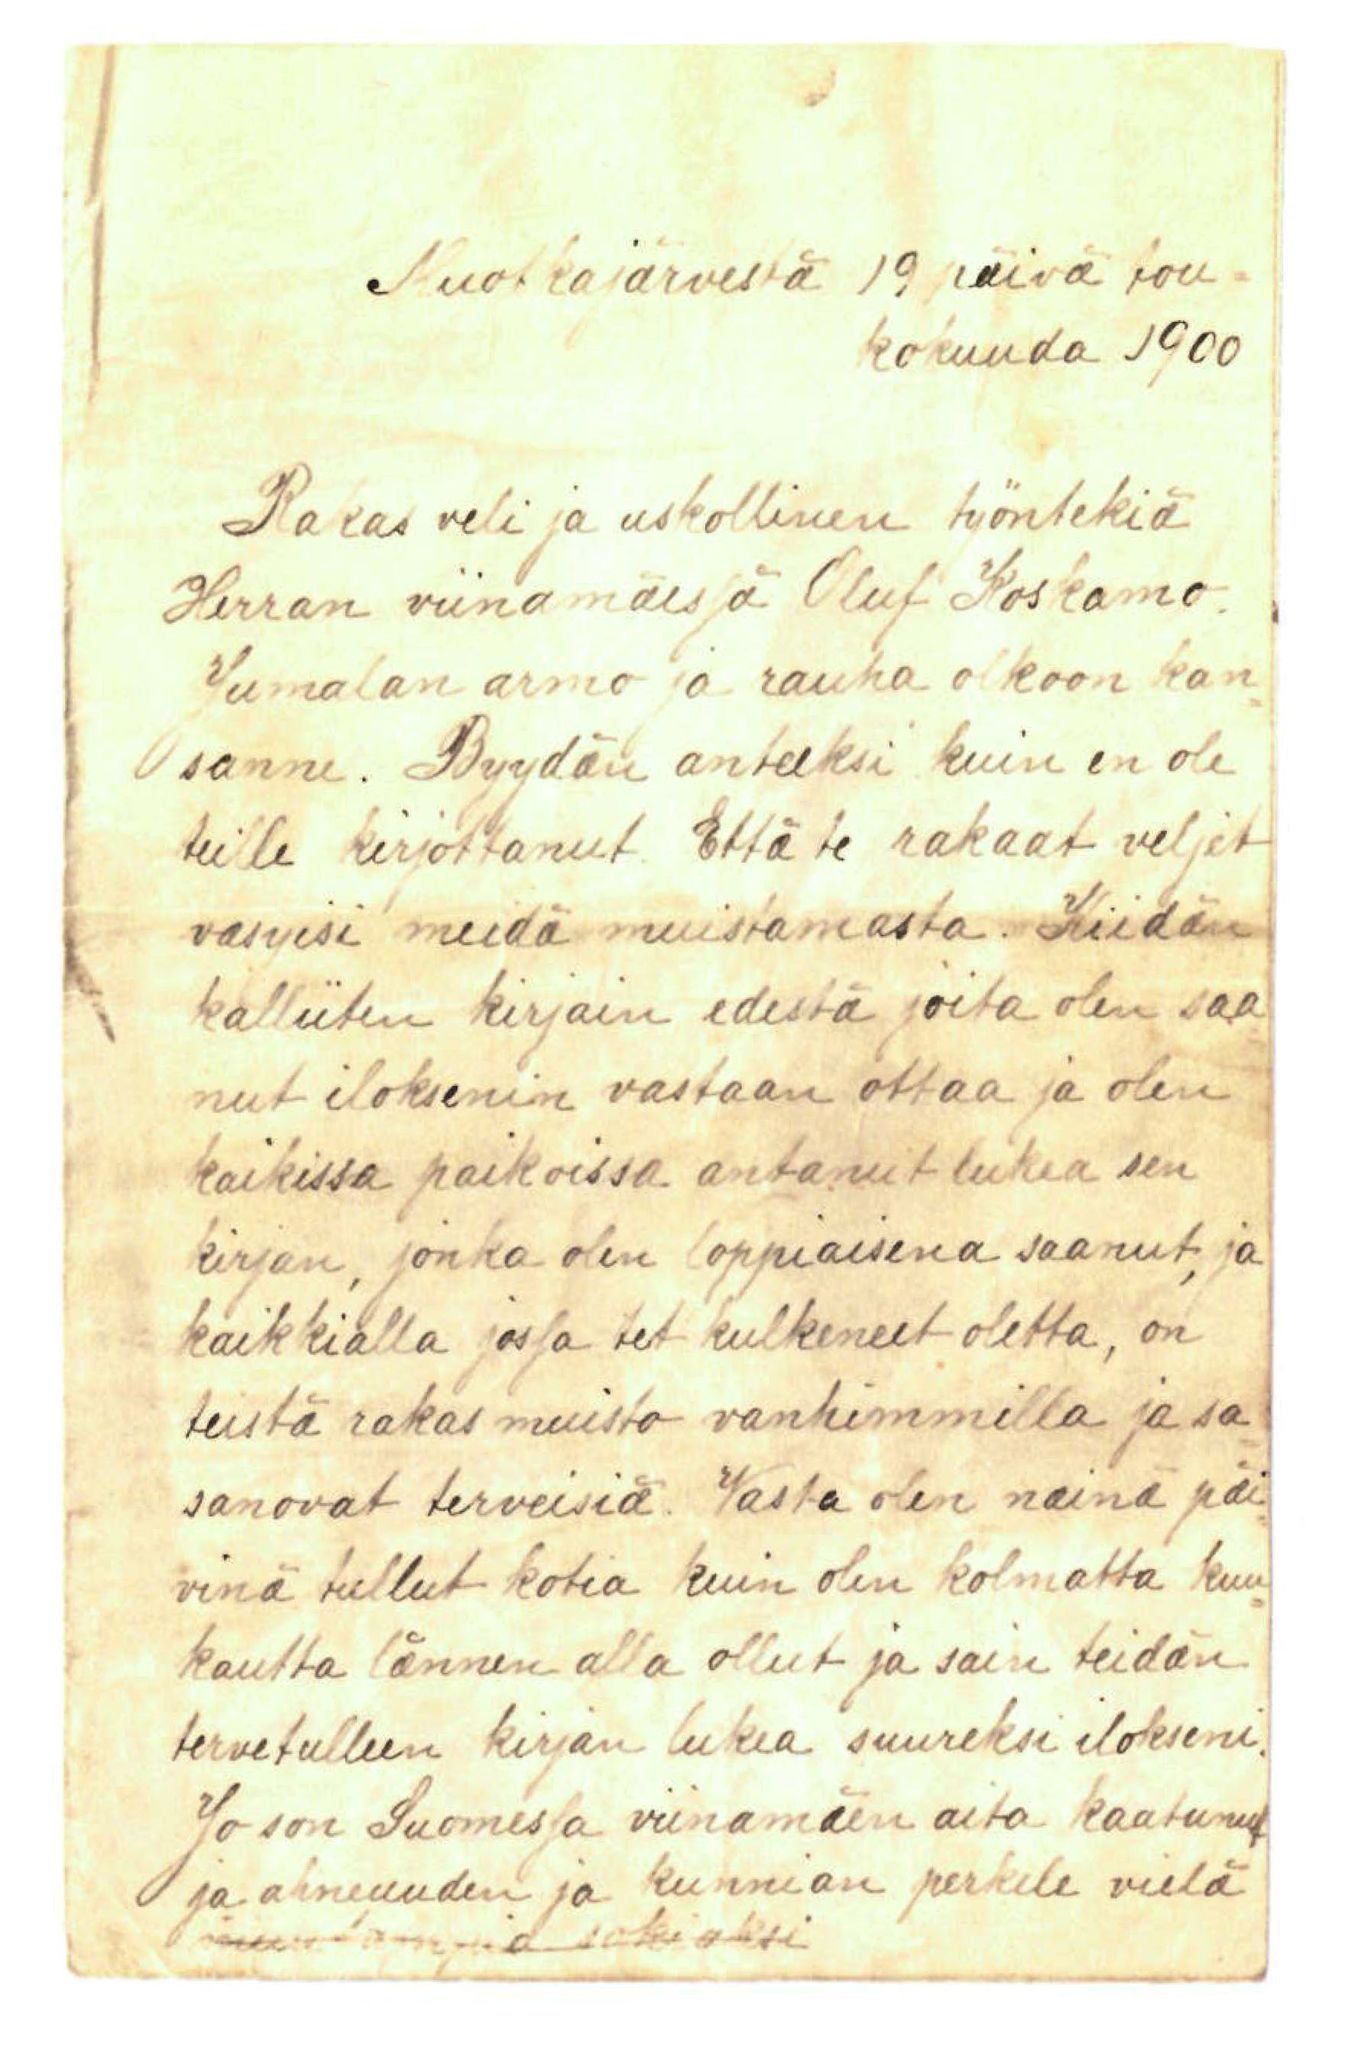 Muotkajärvestä 19 päivä tou-
kokuuda 1900
Rakas veli ja uskollinen työntekiä
Herran viinamäessä Oluf Koskamo.
Jumalan armo ja rauha olkoon kan-
sanne. Pyydän anteeksi kuin en ole
teille kirjottanut. Että te rakaat veljet
vasyisi meidä muistamasta. Kiidän
kalliiten kirjain edestä joita olen saa
nut iloksenin vastaan ottaa ja olen
kaikissa paikoissa antanut lukea sen
kirjan, jonka olen loppiaisena saanut, ja
kaikkialla jossa tet kulkeneet oletta, on
teistä rakas muisto vanhimmilla ja sa-
sanovat terveisiä. Vasta olen näinä päi-
vinä tullut kotia kuin olen kolmatta kuu-
kautta lännen alla ollut ja sain teidän
tervetulleen kirjan lukea suureksi ilokseni.
Jo son Suomessa viinamäen aita kaatunut
ja ahneuuden ja kunnian perkele vielä
sokiaksi